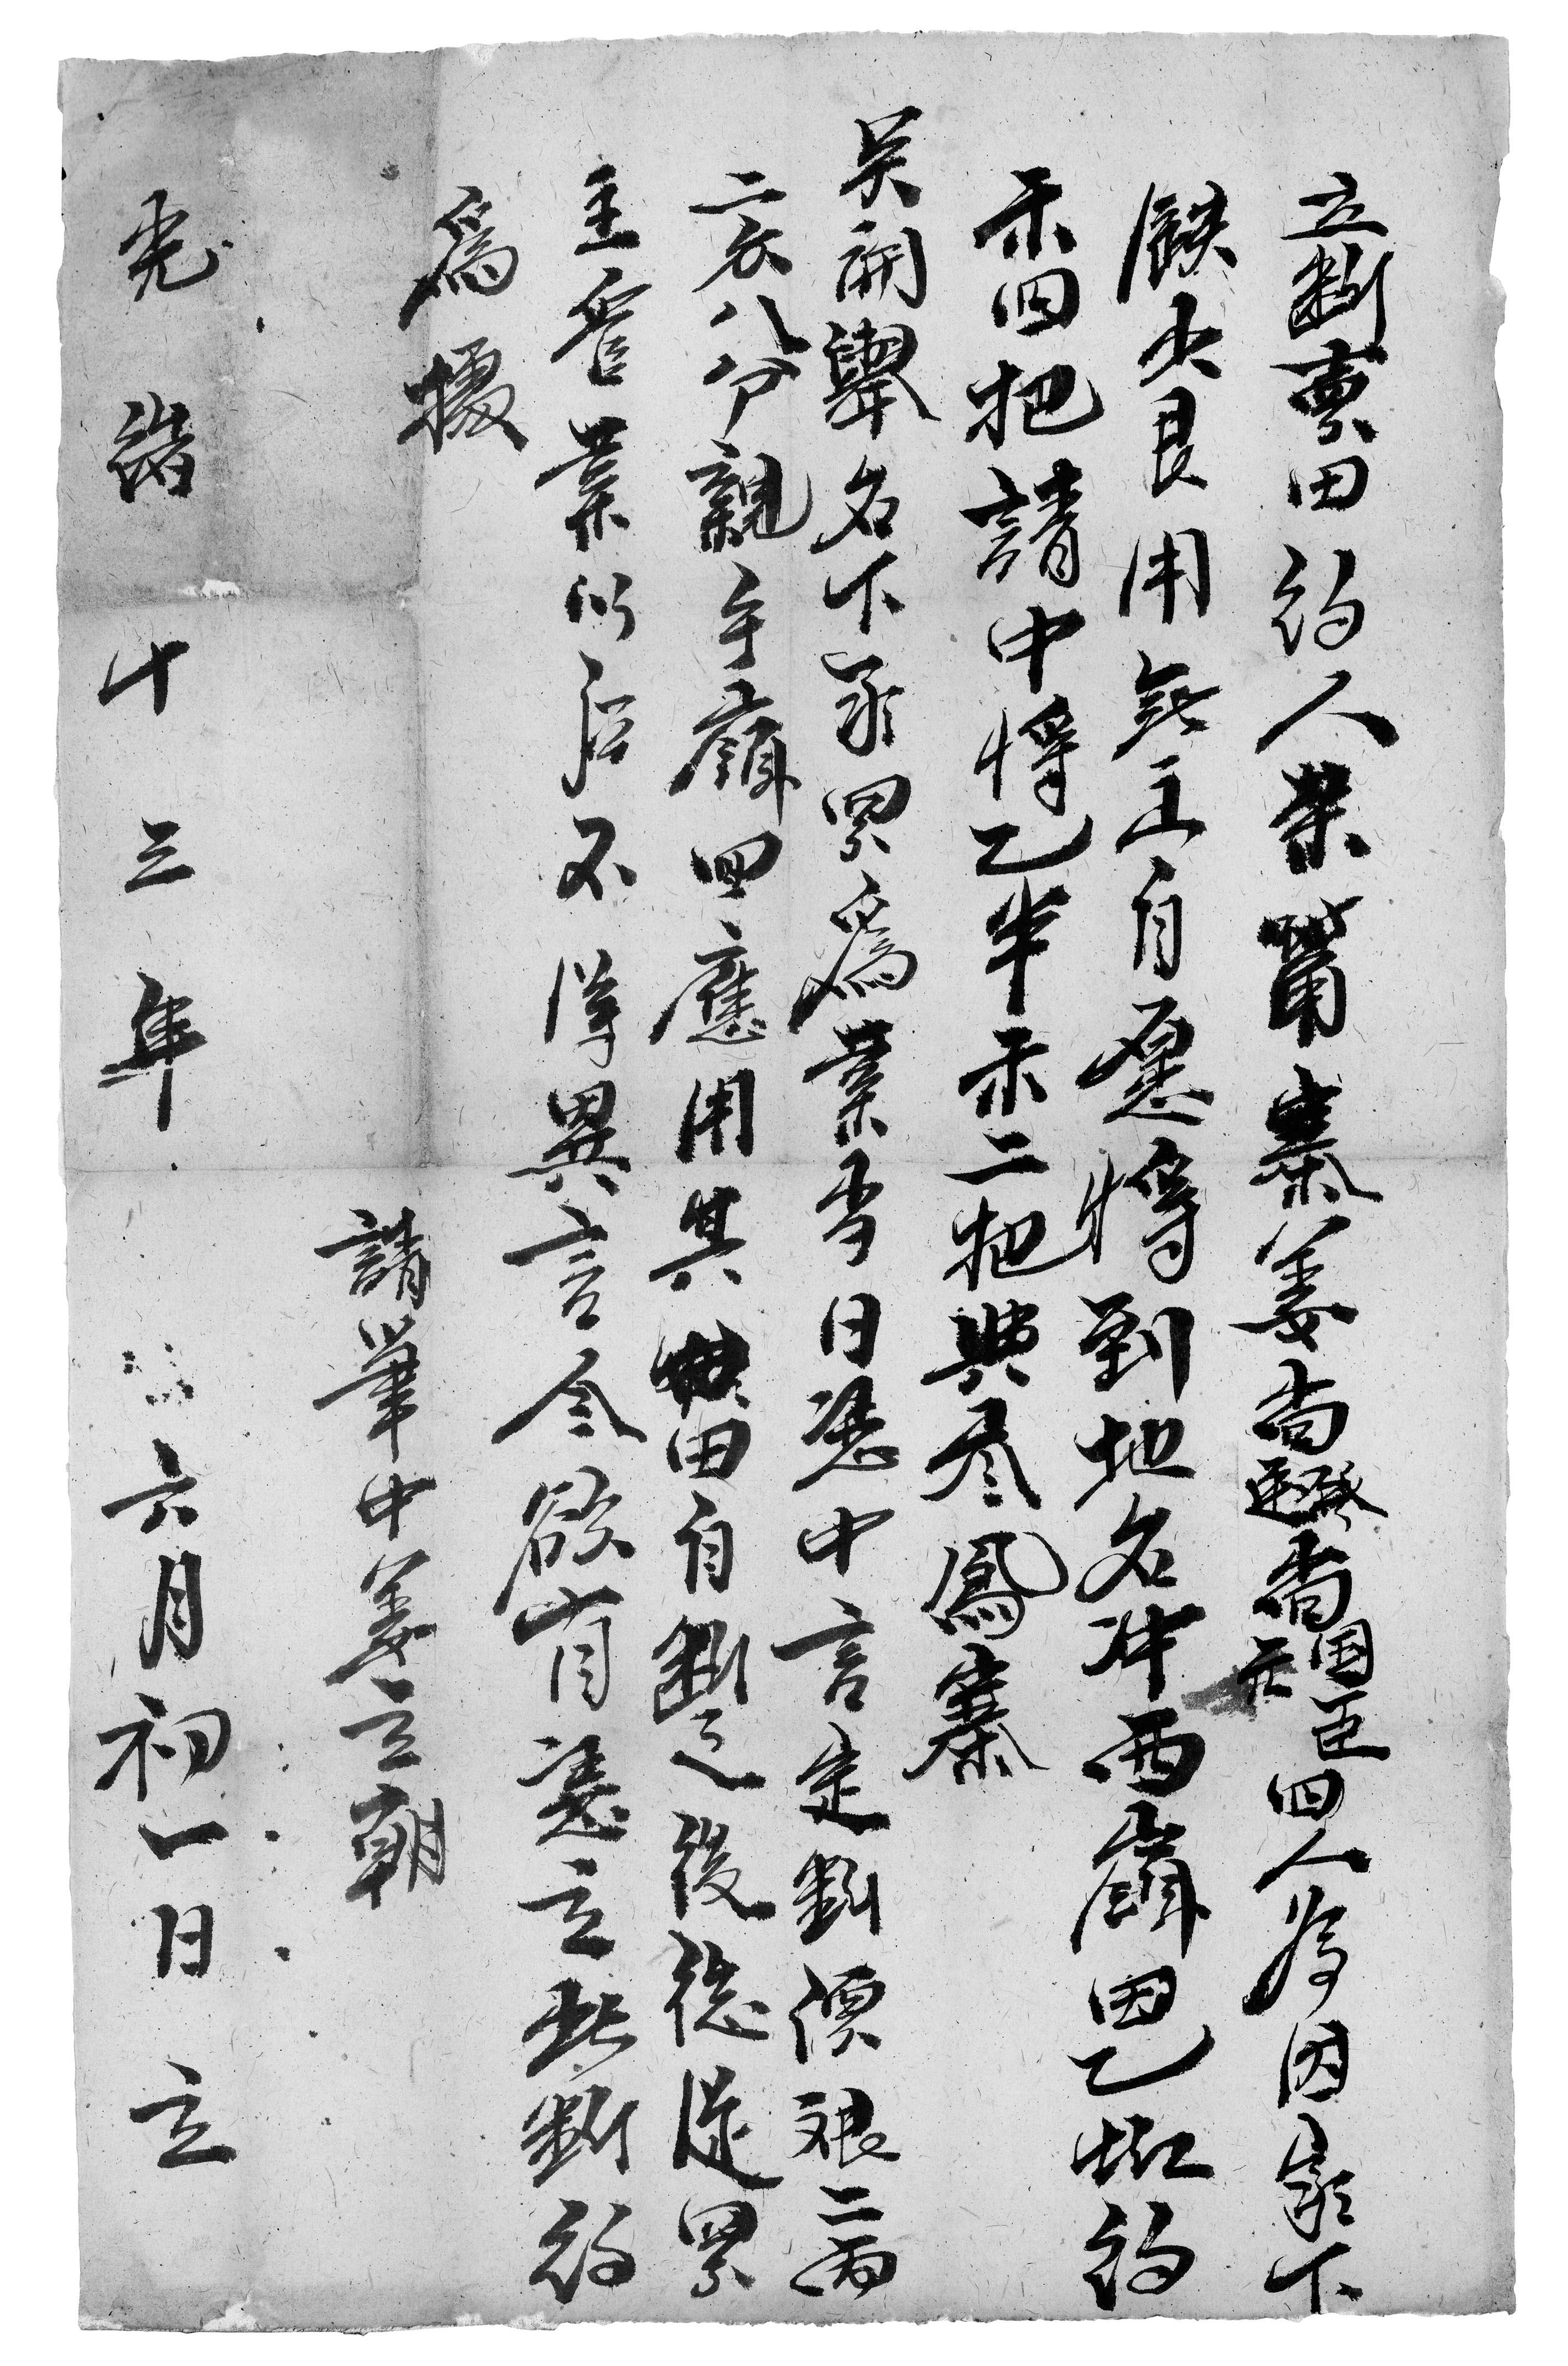 立断賣田約人菜䓣寨姜尚發尚国臣四人为因家下
缺少艮用無主自愿将到地名冲西嶺田乙坵約
禾四把請中将乙半禾二把典尽鳳寨
吴開舉名下承買爲業當日憑中言定断價銀二两
二錢八分親手領回應用其田自断之後任從買
主管業以后不得異言今欲有憑立此断約
爲據
請筆中姜立朝
光緒十三年六月初一日立